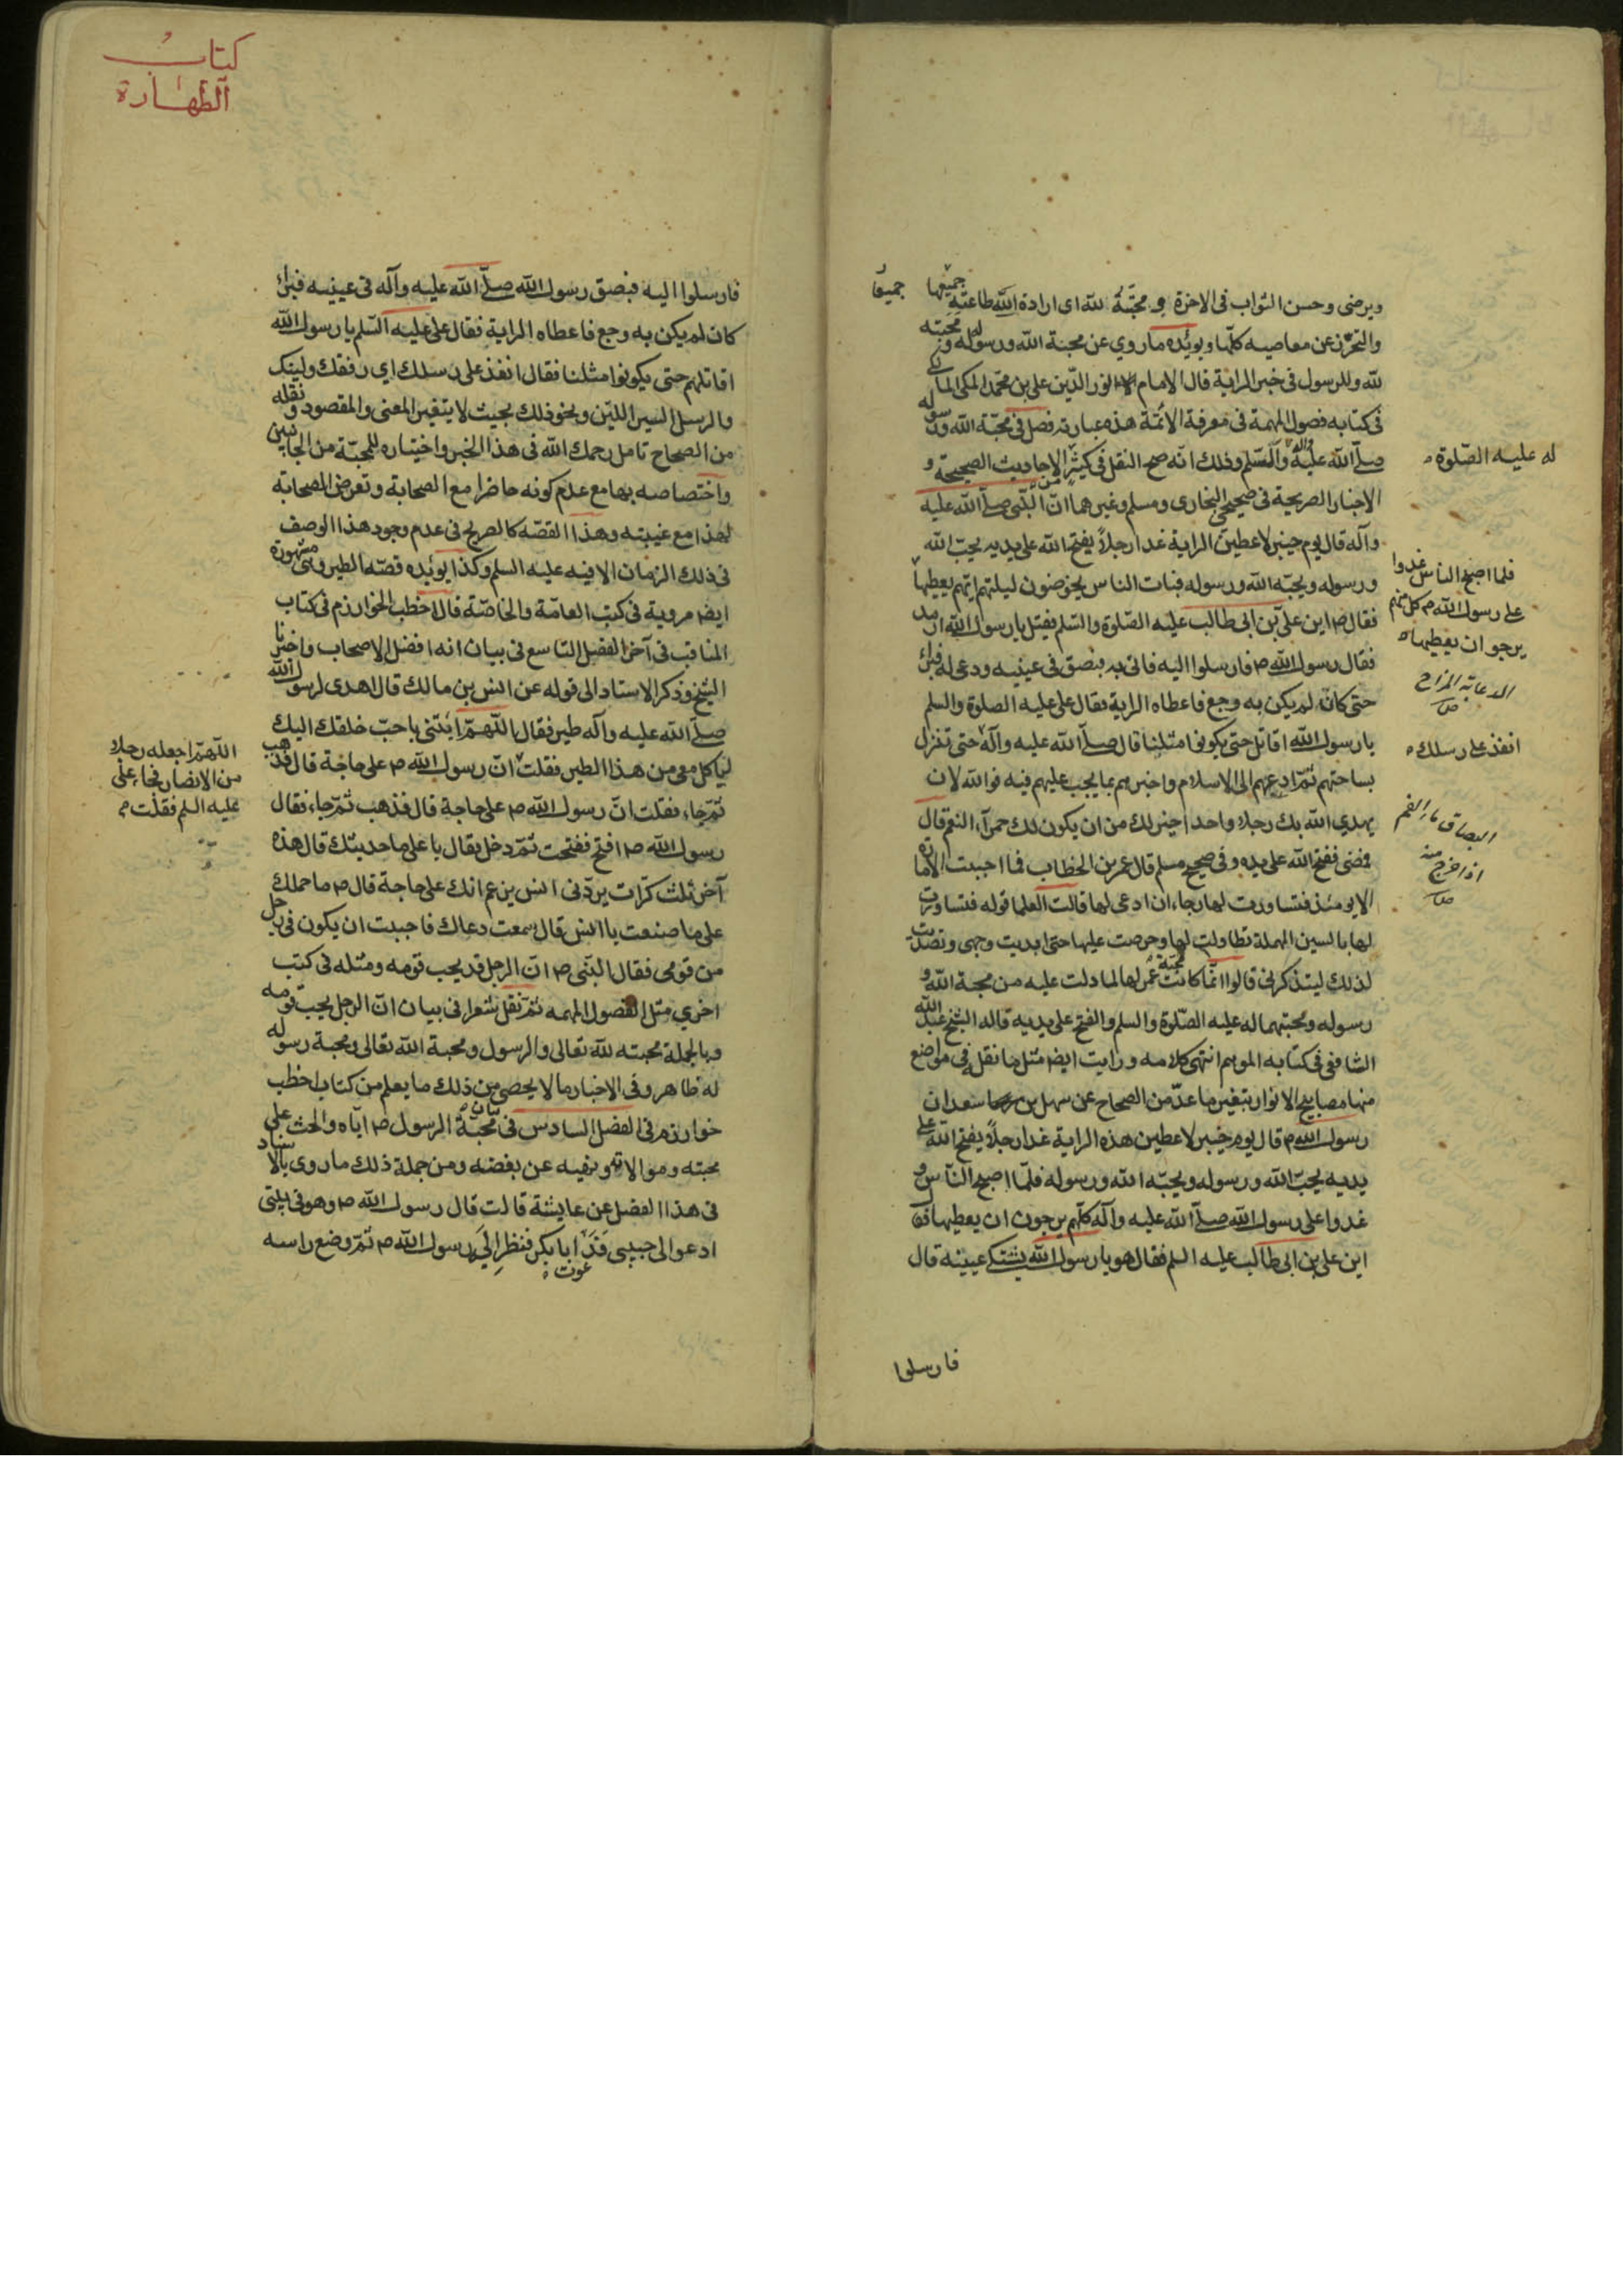 ويرضى وحسن الثواب فى الاخرة و محبّة لله اى ارادة الله طاعته جميعها
جميعا
والتحرّز عن معاصيه كلّها ويؤيّده ماروي عن محبة الله ورسوله ومحبته
لله وللرسول فى خبر الراية قال الامام نور الدّين على بن محمّد المكى المالكى
فى كتابه فصول المهمة فى معرفة الائمّة هذه عبارته فصل فى محبّة الله ورسوله
له عليه الصّلوة
صلّى الله عليه وآله والسّلم وذلك انّه صح النقل فى كثير من الاحاديث الصحيحة و
الاخبار الصريحة فى صحيحى البخارى ومسلم وغيرهما انّ النّبى صلّى الله عليه
وآله قال يوم خيبر لاعطينّ الراية غدا رجلاً يفتح الله على يديه يحبّ الله
ورسوله ويحبّه الله ورسوله فبات الناس يخوضون ليلتهم ايّهم يعطيها
فلما اصبح الناس غدوا
على رسول الله ص كل منهم
يرجو ان يعطيها
فقال ص اين علىّ بن ابى طالب عليه الصّلوة والسّلم فقيل يا رسول الله ارمد
فقال رسول الله ص فارسلوا اليه فاتى به فبصق فى عينيه ودعى له فبرئ
الدعابة المزاح
حتى كان لم يكن به وجع فاعطاه الراية فقال على عليه الصلوة والسلم
يا رسول الله اقاتل حتى يكونوا مثلنا قال صلّى الله عليه وآله حتى تنزل
انفذ على رسلك
بساحتهم ثمّ ادعهم الى الاسلام واخبرهم بما يجب عليهم فيه فوالله لان
يهدي الله بك رجلا واحدا خير لك من ان يكون لك حمرآء النعم قال
البصاق ماء الفم
اذا خرج منه
فمضى ففتح الله على يديه وفى صحيح مسلم قال عمر بن الخطاب فما احببت الامارة
الا يومئذ فتساورت لها رجاء ان ادعى لها قالت العلما قوله فتساورت
لها بالسين المهملة تطاولت لها وحرصت عليها حتى ابديت وجهى وتصدّيت
لذلك ليتذكرنى قالوا انّما كانت محبّة عمر لها لما دلت عليه من محبة الله و
رسوله ومحبتهما له عليه الصّلوة والسلم والفتح على يديه قاله الشيخ عبد الله
الشافعى فى كتابه الموسم انتهى كلامه ورايت ايضا مثل ما نقل فى مواضع
منها مصابيح الانوار بتغيير ما عدّ من الصحاح عن سهل بن سعد ان
رسول الله ص قال يوم خيبر لاعطين هذه الراية غدا رجلاً يفتح الله على
يديه يحبّ الله ورسوله ويحبّه الله ورسوله فلمّا اصبح النّاس و
غدوا على رسول الله صلّى الله عليه وآله كلّهم يرجون ان يعطيها فقال
اين على بن ابى طالب عليه السلم فقال هو يا رسول الله يشتكى عينيه قال
فارسلوا
كتاب
الطهارة
فارسلوا اليه فبصق رسول الله صلّى الله عليه وآله فى عينيه فبرئ
كان لم يكن به وجع فاعطاه الراية فقال على عليه السّلم يا رسول الله
اقاتلهم حتى يكونوا مثلنا فقال انفذ على رسلك اي رفقك ولينك
والرسل السير اللين ونحو ذلك بحيث لا يتغير المعنى والمقصود ونقله
من الصحاح تامل رحمك الله فى هذا الخبر واختياره للمحبّة من الجانبين
واختصاصه بها مع عدم كونه حاضرا مع الصحابة وتعرض الصحابة
لهذا مع غيبته وهذا القصّه كالصريح فى عدم وجود هذا الوصف
فى ذلك الزمان الا فيه عليه السلم وكذا يؤيّده قصّة الطير وهى مشهورة
ايضا مروية فى كتب العامّة والخاصّة قال اخطب الخوارزم فى كتاب
المناقب فى آخر الفصل التاسع فى بيان انه افضل الاصحاب واخبرنا
الشيخ وذكر الاسناد الى قوله عن انس بن مالك قال اهدى لرسول الله
صلّى الله عليه وآله طير فقال اللّهمّ ائتنى باحبّ خلقك اليك
لياكل معى من هذا الطير فقلت انّ رسول الله ص على حاجة قال فذهب
اللّهمّ اجعله رجلا
من الانصار فجاء علىّ
عليه السلم فقلت
ثمّ جاء فقلت انّ رسول الله ص على حاجة قال فذهب ثمّ جاء فقال
رسول الله ص افتح ففتحت ثمّ دخل فقال يا على ما حديثك قال هذه
آخر ثلث كرّات يردّنى انس يزعم انك على حاجة قال ص ما حملك
على ما صنعت يا انس قال سمعت دعاك فاحببت ان يكون فى رجل
من قومى فقال النّبى ص انّ الرجل قد يحب قومه ومثله فى كتب
اخري مثل الفصول المهمه ثمّ نقل شعرا فى بيان انّ الرجل يحبّ قومه
وبالجملة محبته لله تعالى والرسول ومحبة الله تعالى ومحبة رسوله
له ظاهر وفى الاخبار ما لا يحصى من ذلك ما يعلم من كتاب اخطب
خوارزم فى الفصل السادس فى بيان محبّة الرسول ص ايّاه والحث على
محبته وموالاته ونهيه عن بغضه ومن جملة ذلك ما روى بالاسناد
فى هذا الفصل عن عايشة قالت قال رسول الله ص وهو فى بيتى
ادعوا لى حبيبى فدعوت ابا بكر فنظر اليه رسول الله ص ثمّ وضع راسه